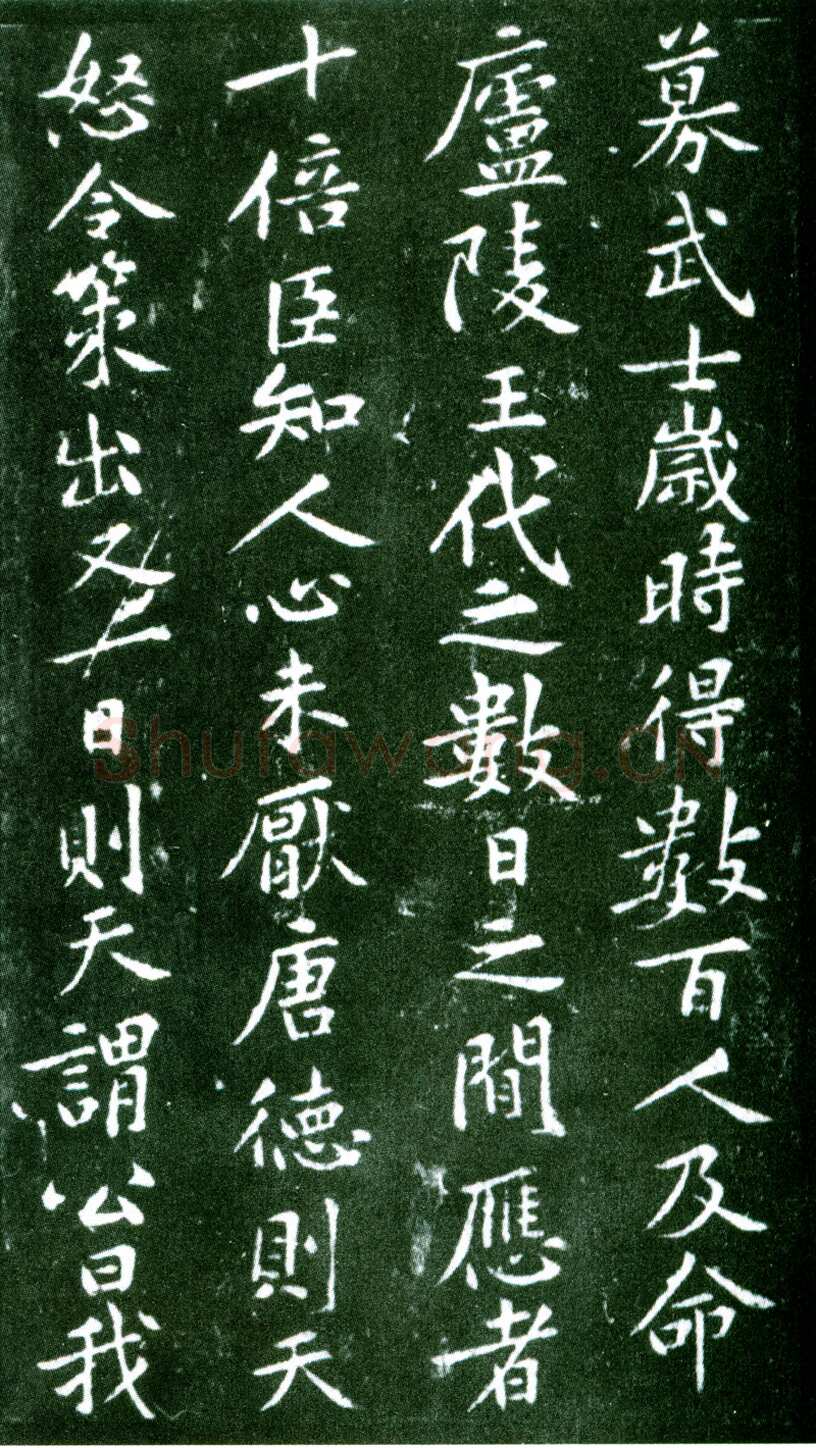 募武士歲時得數百人及命
廬陵王代之數日之間應者
十倍臣知人心未厭唐德則天
怒令策出又一日則天謂公曰我
Shufawang.CN